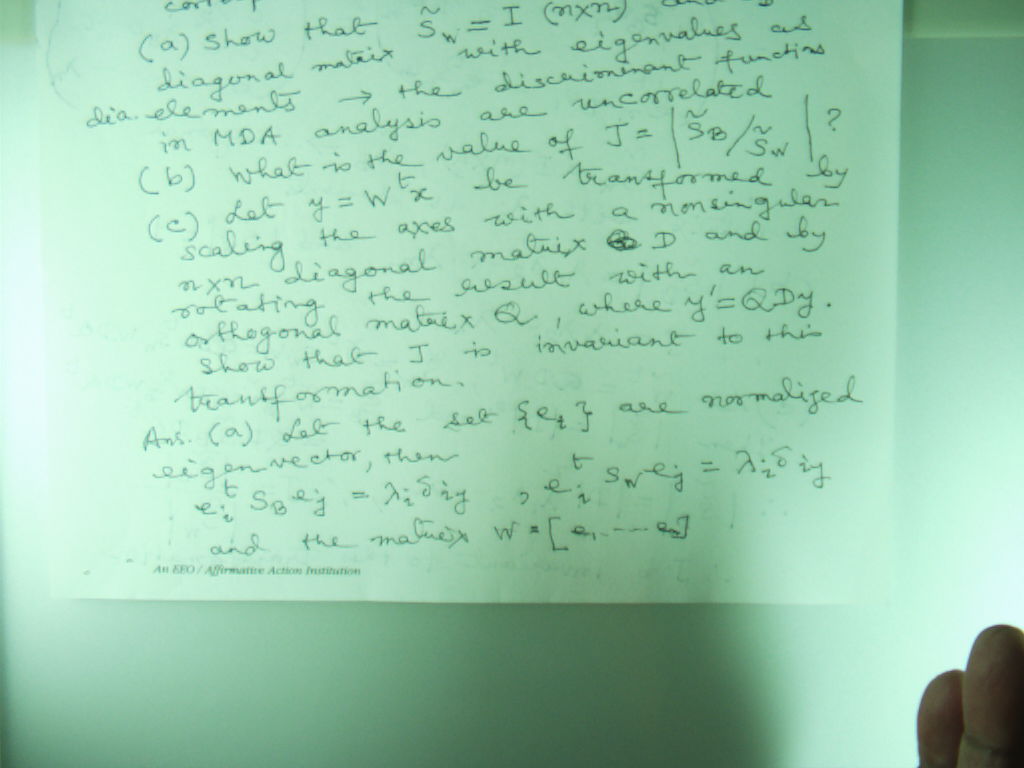 (a) Show that S̃w = I (n×n) and
diagonal matrix with eigenvalues as
dia. elements → the discriminant functions
in MDA analysis are uncorrelated
(b) What is the value of J = | S̃B / S̃W | ?
(c) Let y = Wᵗx be transformed by
scaling the axes with a nonsingular
n×n diagonal matrix D and by
rotating the result with an
orthogonal matrix Q, where y' = QDy.
Show that J is invariant to this
transformation.
Ans. (a) Let the set {ei} are normalized
eigen vector, then
eiᵗ SB ej = λi δij , eiᵗ SW ej = λi δij
and the matrix W = [e1 ---- en]
An EEO / Affirmative Action Institution